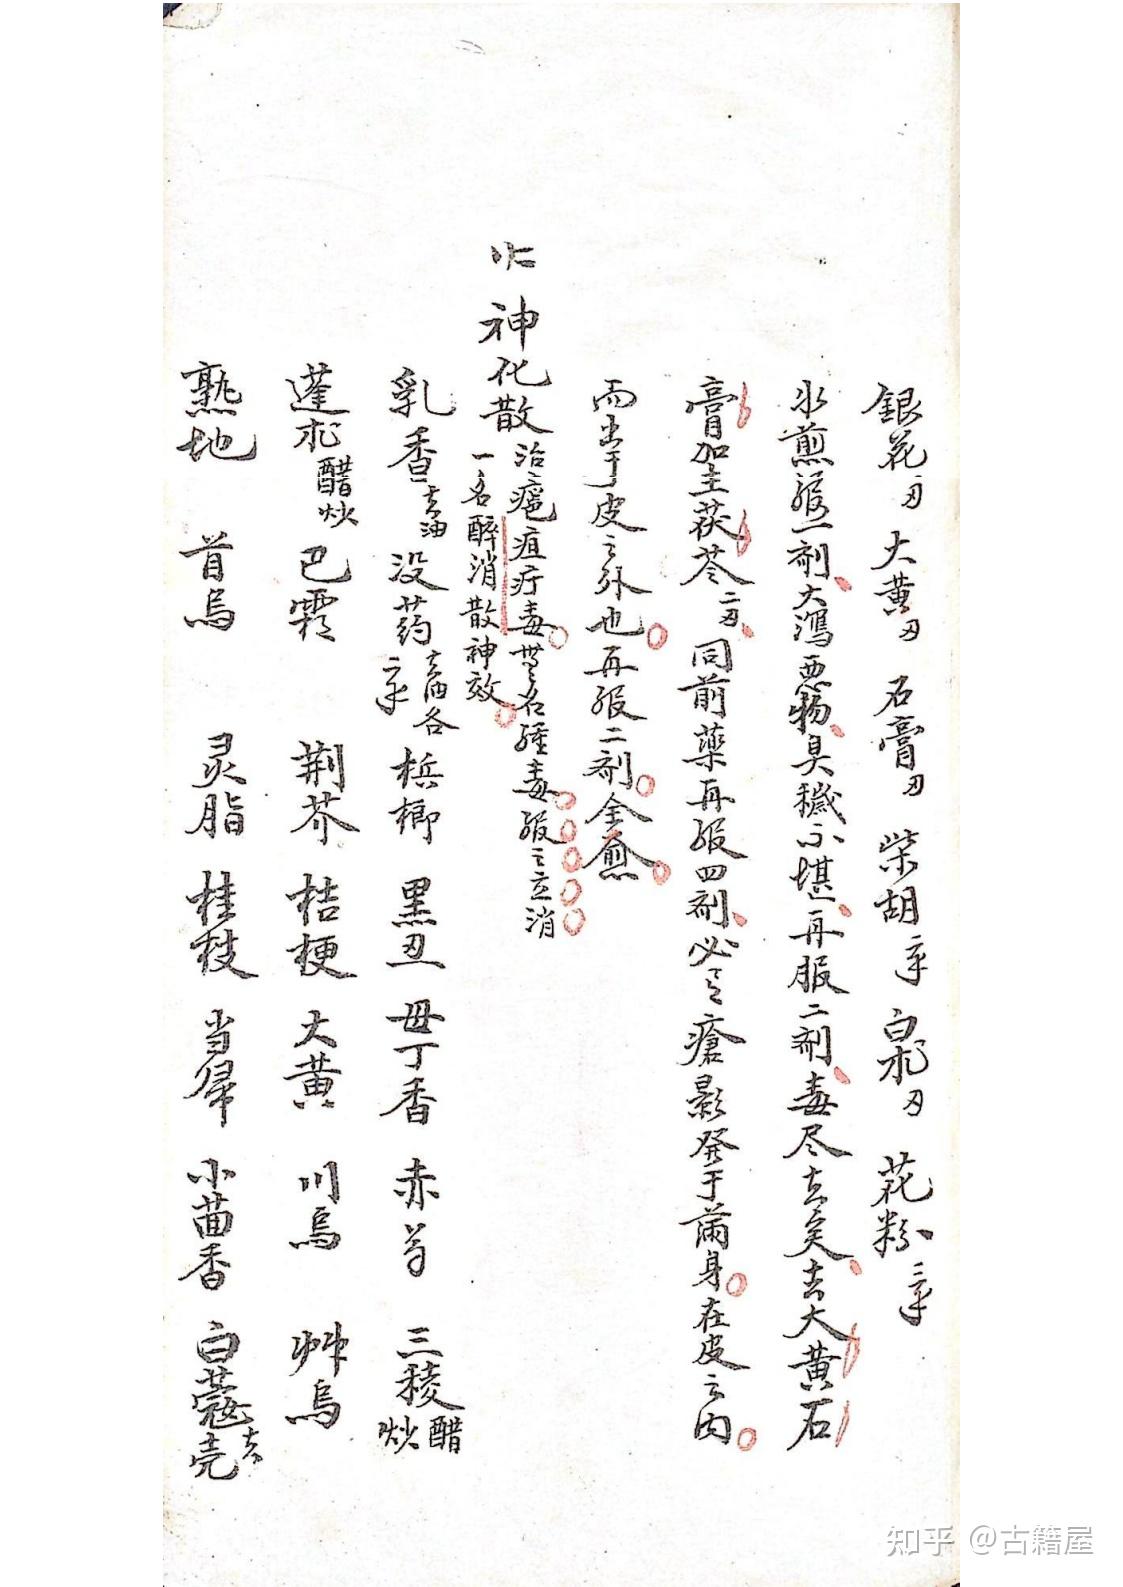 銀花刄 大黄刄 石膏刄 柴胡 白朮刄 花粉
水煎服一剤大瀉悪物臭穢不堪再服二剤毒尽去矣去大黄石
膏加土茯苓二刄同前藥再服四剤必之瘡影発于滿身在皮之内
而出于皮之外也再服二剤全愈
神化散 治瘡疽疔毒無名腫毒服之立消
一名醉消散神效
乳香去油 没药去油各 梹榔 黒丑 母丁香 赤芍 三稜醋炒
蓬朮醋炒 巴霜 荆芥 桔梗 大黄 川烏 艸烏
熟地 首烏 灵脂 桂枝 当帰 小茴香 白蔻去壳
知乎 @古籍屋